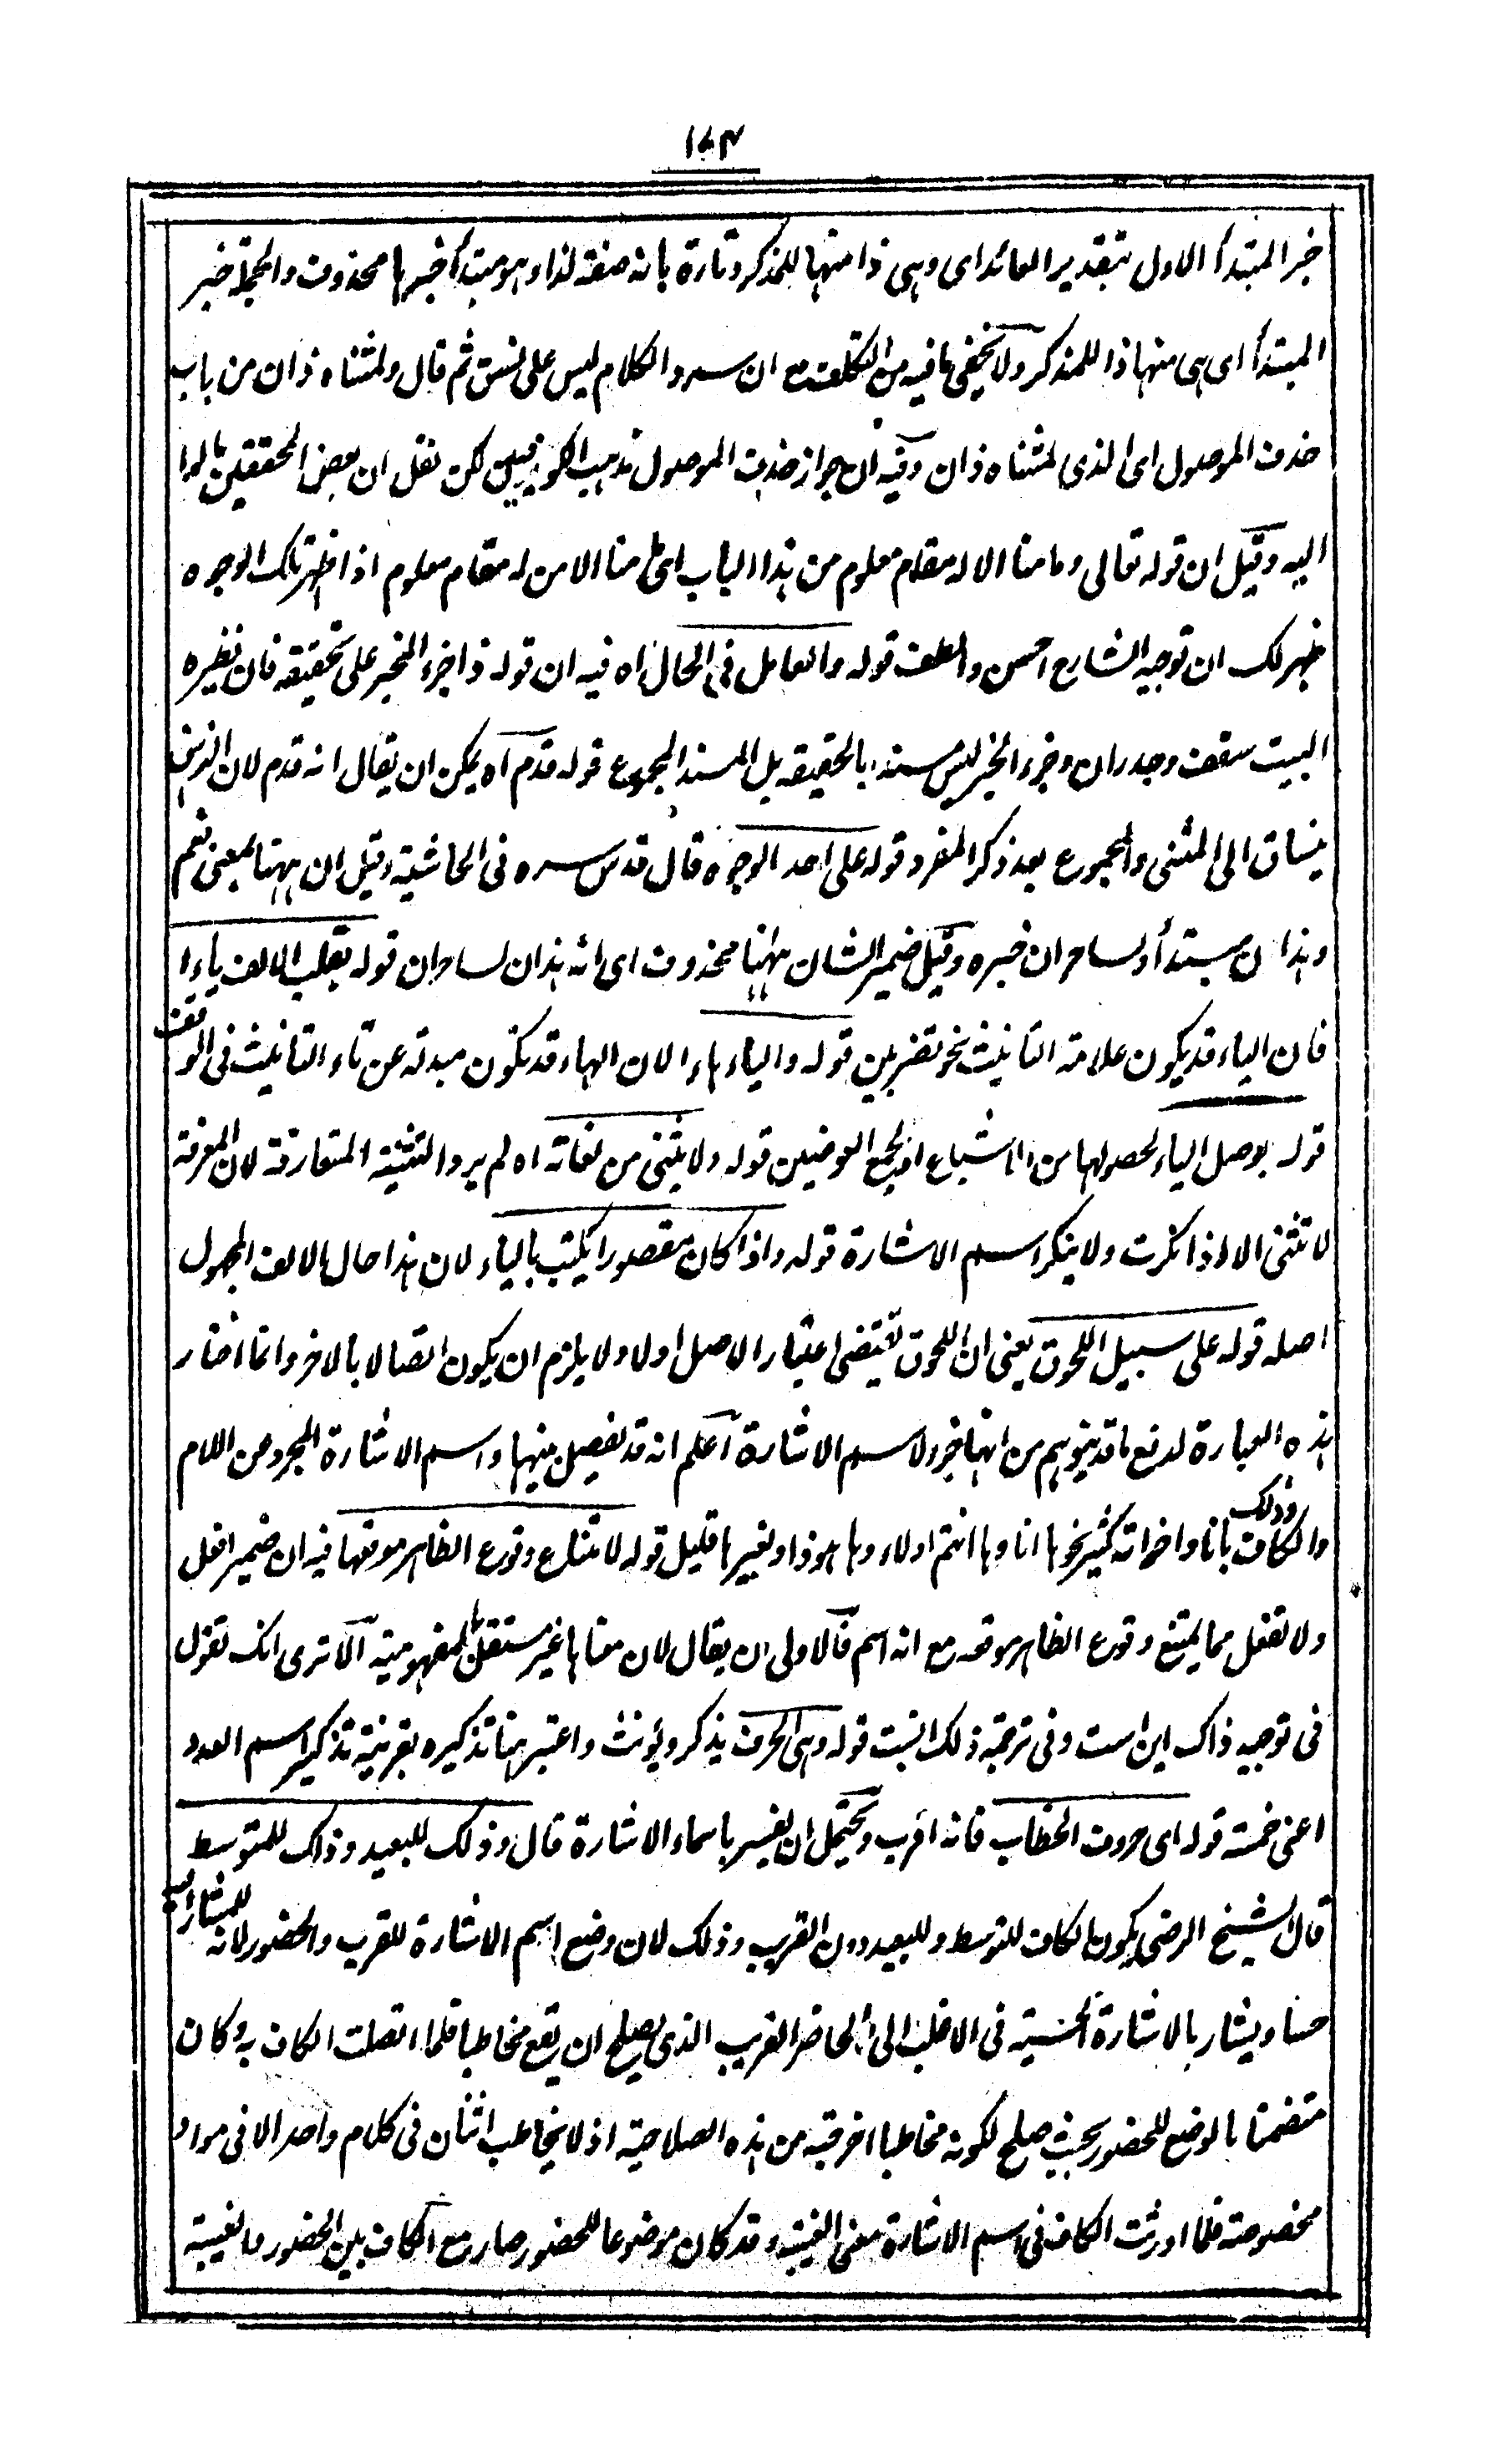 ١٧٤
خبر المبتدأ الاول بتقدير العائد اى وهى ذا منها للمذكر وتارة بانه صفة لذا وهو مبتدأ خبرها محذوف والجملة خبر
المبتدأ اى هى منها ذا للمذكر ولا يخفى ما فيه من التكلف مع ان سرد الكلام ليس على نسق ثم قال ولمثناه ذان من باب
حذف الموصول اى الذى لمثناه ذان وفيه ان جواز حذف الموصول مذهب الكوفيين لكن نقل ان بعض المحققين مالوا
اليه وقيل ان قوله تعالى وما منا الا له مقام معلوم من هذا الباب اى ما منا الا من له مقام معلوم اذا ظهر تلك الوجوه
ظهر لك ان توجيه الشارح احسن والطف قوله والعامل فى الحال اه فيه ان قوله ذا جزء الخبر على تحقيقه فان نظيره
البيت سقف وجدران وجزء الخبر ليس مسندا بالحقيقه بل المسند المجموع قوله قدم اه يمكن ان يقال انه قدم لان الذهن
ينساق الى المثنى والمجموع بعد ذكر المفرد قوله على احد الوجوه قال قدس سره فى الحاشية وقيل ان ههنا بمعنى نعم
وهذان مبتدأ ولساحران خبره وقيل ضمير الشان ههنا محذوف اى انه هذان لساحران قوله بقلب الالف ياءا
فان الياء قد يكون علامة التانيث نحو تضربين قوله والياء هاءا لان الهاء قد تكون مبدلة عن تاء التانيث فى الوقف
قوله بوصل الياء لحصولها من الاشباع او بجمع العوضين قوله ولا يثنى من لغاته اه لم يرد التثنية المتعارفة لان المعرفة
لا تثنى الا اذا نكرت ولا ينكر اسم الاشارة قوله واذا كان مقصورا يكتب بالياء لان هذا حال الالف المجهول
اصله قوله على سبيل اللحوق يعنى ان اللحوق يقتضى اعتبار الاصل اولا ولا يلزم ان يكون اتصالا بالاخر وانما اختار
هذه العبارة لدفع ما قد يتوهم من انها جزء لاسم الاشارة اعلم انه قد يفصل بينها واسم الاشارة المجرد عن اللام
والكاف وذلك بانا واخواته كثير نحو ها انا وها انتم اولاء وها هو ذا وبغيرها قليل قوله لامتناع وقوع الظاهر موقعها فيه ان ضمير افعل
ولا تفعل مما يمتنع وقوع الظاهر موقعه مع انه اسم فالاولى ان يقال لان معناها غير مستقل بالمفهومية الا ترى انك تقول
فى توجيه ذاك اين است وفى ترجمة ذلك انست قوله وهى الحرف يذكر ويؤنث واعتبر هنا تذكيره بقرينة تذكير اسم العدد
اعنى خمسة قوله اى حروف الخطاب فانه اقرب ويحتمل ان يفسر باسماء الاشارة قال وذلك للبعيد وذاك للمتوسط
قال الشيخ الرضى يكون الكاف للتوسط وللبعيد دون القريب وذلك لان وضع اسم الاشارة للقرب والحضور لانه للمشار اليه
حسا ويشار بالاشارة الحسية فى الاغلب الى الحاضر القريب الذى يصلح ان يقع مخاطبا فلما اتصلت الكاف به وكان
متضمنا بالوضع للحضور بحيث صلح لكونه مخاطبا اخرجته من هذه الصلاحية اذ لا يخاطب اثنان فى كلام واحد الا فى مواد
مخصوصة فلما اورثت الكاف فى اسم الاشارة معنى الغيبة وقد كان موضوعا للحضور صار مع الكاف بين الحضور والغيبة